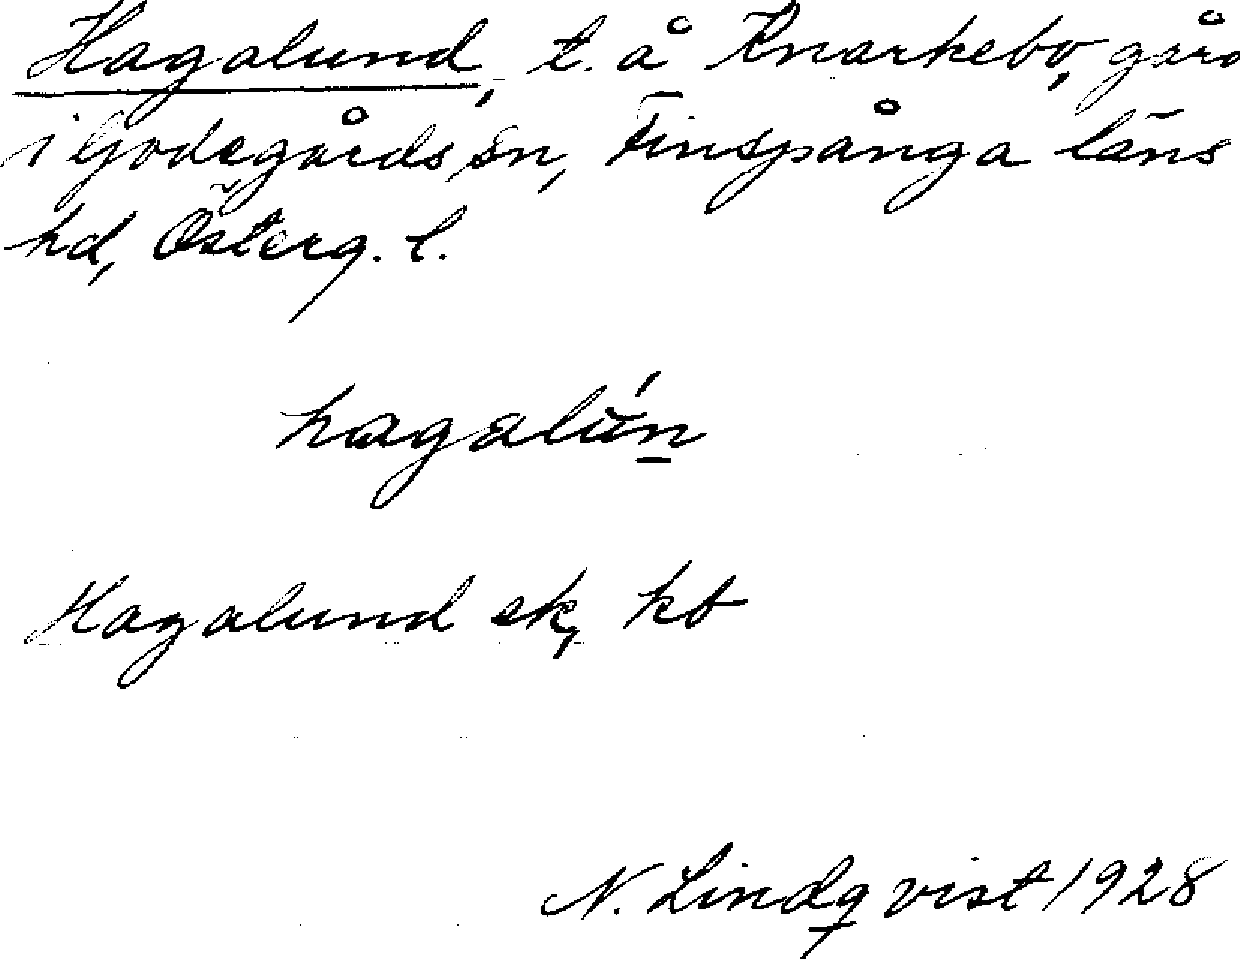 Hagalund, t. å Knarkebo, gård
i Godegårds sn, Finspånga läns
hd, Österg. l.
hagalún
Hagalund ek, kb
N. Lindqvist 1928